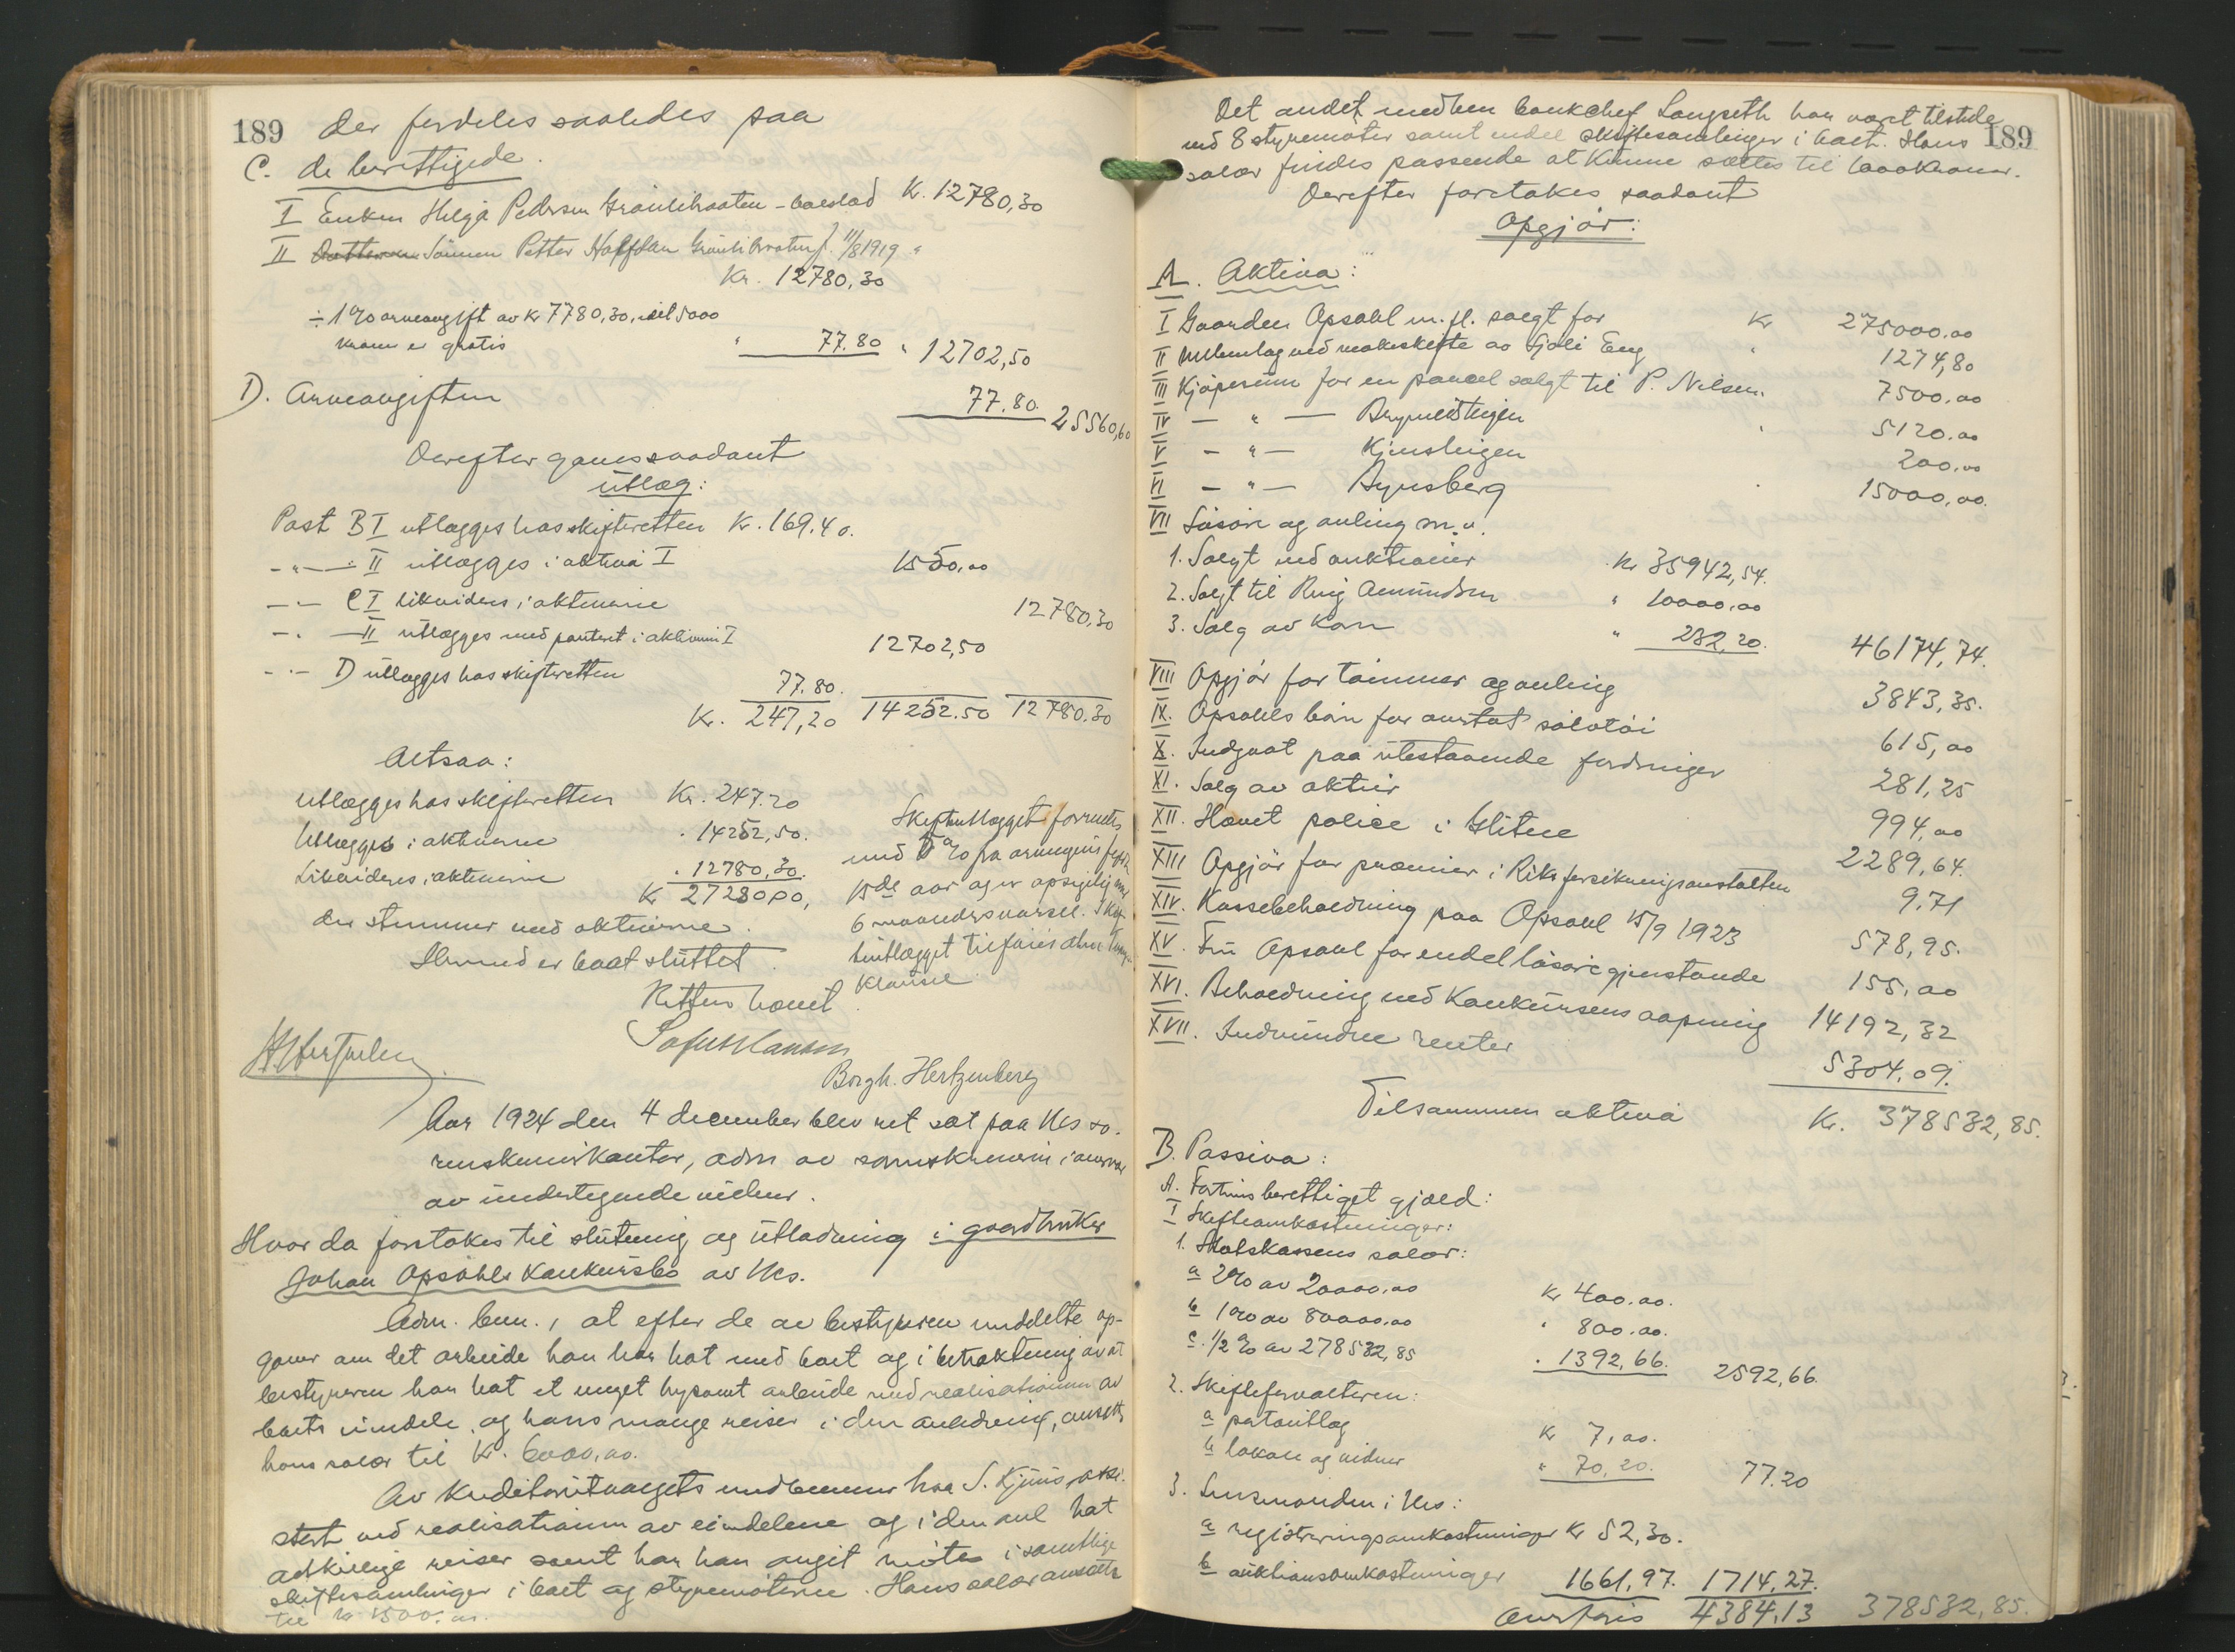 189 der fordeles saaledes paa
C. de berettigede.
I Enken Helga Pedersen Grönlibraaten - boeslod Kr. 12780,30
II Sönnen Petter Haffdan Grönlibraaten f. 11/8 1919 "
Kr. 12780,30
÷ 1% arveavgift av Kr 7780,30, idet 5000
kroner er gratis " 77.80 " 12702,50
D. Arveavgiften 77.80 25560,60
Derefter gjøres saadant
Utlæg:
Post B I utlægges hos skifteretten Kr. 169.40.
- " - II utlægges i aktiva I 1550,00
- " - C I likvideres i aktiverne 12780,30
- " - II utlægges med panteret i aktivum I 12702,50
- " - D utlægges hos skifteretten 77.80.
Kr. 247,20 14252.50 12780.30
Altsaa:
Utlægges hos skifteretten Kr. 247.20
Utlægges i aktiverne " 14252,50.
Likvideres i aktiverne " 12780,30.
Kr 27280,00,
der stemmer med aktiverne.
Hermed er boet sluttet.
Skifteutlægget forrentes
med 5% fra arvingens fyldte
15de aar og er opsigelig med
6 maaneders varsel. Skif-
teutlægget tilføies
klausul
Retten hævet.
Borgh. Hertzenberg
Aar 1924 den 4 december blev ret sat paa Nes so-
renskriverkontor, adm av sorenskriveren i nærvær
av undertegnede vidner.
Hvor da foretokes til slutning og utlodning i gaardbruker
Johan Opsahls konkursbo av Nes.
Adm. bem., at efter de av bestyreren meddelte op-
gaver om det arbeide han har hat med boet og i betraktning av at
bestyreren har hat et meget brysomt arbeide med realisationen av
boets eiendele, og hans mange reiser i den anledning, ansættes
hans salær til Kr. 6000,00.
Av kreditorutvalgets medlemmer har S. Kjuus assi-
stert ved realisationen av eiendelene og i den anl hat
adskillige reiser samt har han avgit møte i samtlige
skiftesamlinger i boet og styremøterne. Hans salær ansættes
til kr 1500.00.
Det andet medlem bankchef Langseth har været tilstede
ved 8 styremøter samt endel skiftesamlinger i boet. Hans 189
salær findes passende at kunne sættes til 600 kroner.
Derefter foretokes saadant
Opgjör:
A. Aktiva:
I Gaarden Opsahl m. fl. solgt for Kr 275000.00
II Mellemlag ved makeskifte av Sjoli Eng " 1274,80
III Kjöpesum for en parcel solgt til P. Nilsen. 7500.00
IV - " - Brynistuigen " 5120.00
V - " - Kjensligen 200.00
VI - " - Bynsberg " 15000,00.
VII Lösöre og avling m. v.
1. Solgt ved auktioner Kr 35942,54.
2. Solgt til Ring Amundsen " 10000.00
3. Salg av korn " 232,20. 46174,74.
VIII Opgjör for tömmer og avling 3843,35.
IX. Opsahls lån for 615,00
X. Indgaat paa utestaaende fordringer 281,25
XI. Salg av aktier 994,00
XII. Hævet police i Glitne 2289,64.
XIII Opgjör for præmier i Riksforsikringsanstalten 9.71
XIV. Kassebeholdning paa Opsahl 15/9 1923 578,95.
XV. Fru Opsahl for endel lösöregjenstande 155,00
XVI. Beholdning ved konkursens aapning 14192,32
XVII. Indvundne renter 5304,09.
Tilsammen aktiva Kr. 378532,85.
B. Passiva:
A. Fortrinsberettiget gjæld:
I Skifteomkostninger:
1. Statskassens salær:
a 2% av 20000.00 Kr 400.00.
b 1% av 80000.00 " 800.00.
c. 1/2% av 278532,85 " 1392,66. 2592,66.
2. Skifteforvalteren:
a portoutlæg Kr 7,00.
b lokale og vidner " 70,20. 77.20
3. Lensmanden i Nes:
a registreringsomkostninger Kr 52,30.
b auktionsomkostninger 1661,97. 1714,27.
Overföres 4384,13 378532,85.